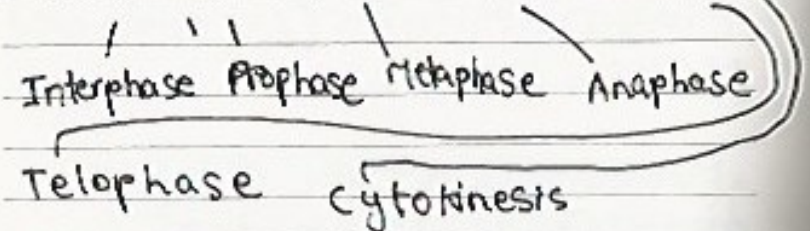 Interphase Prophase Metaphase Anaphase
Telophase Cytokinesis